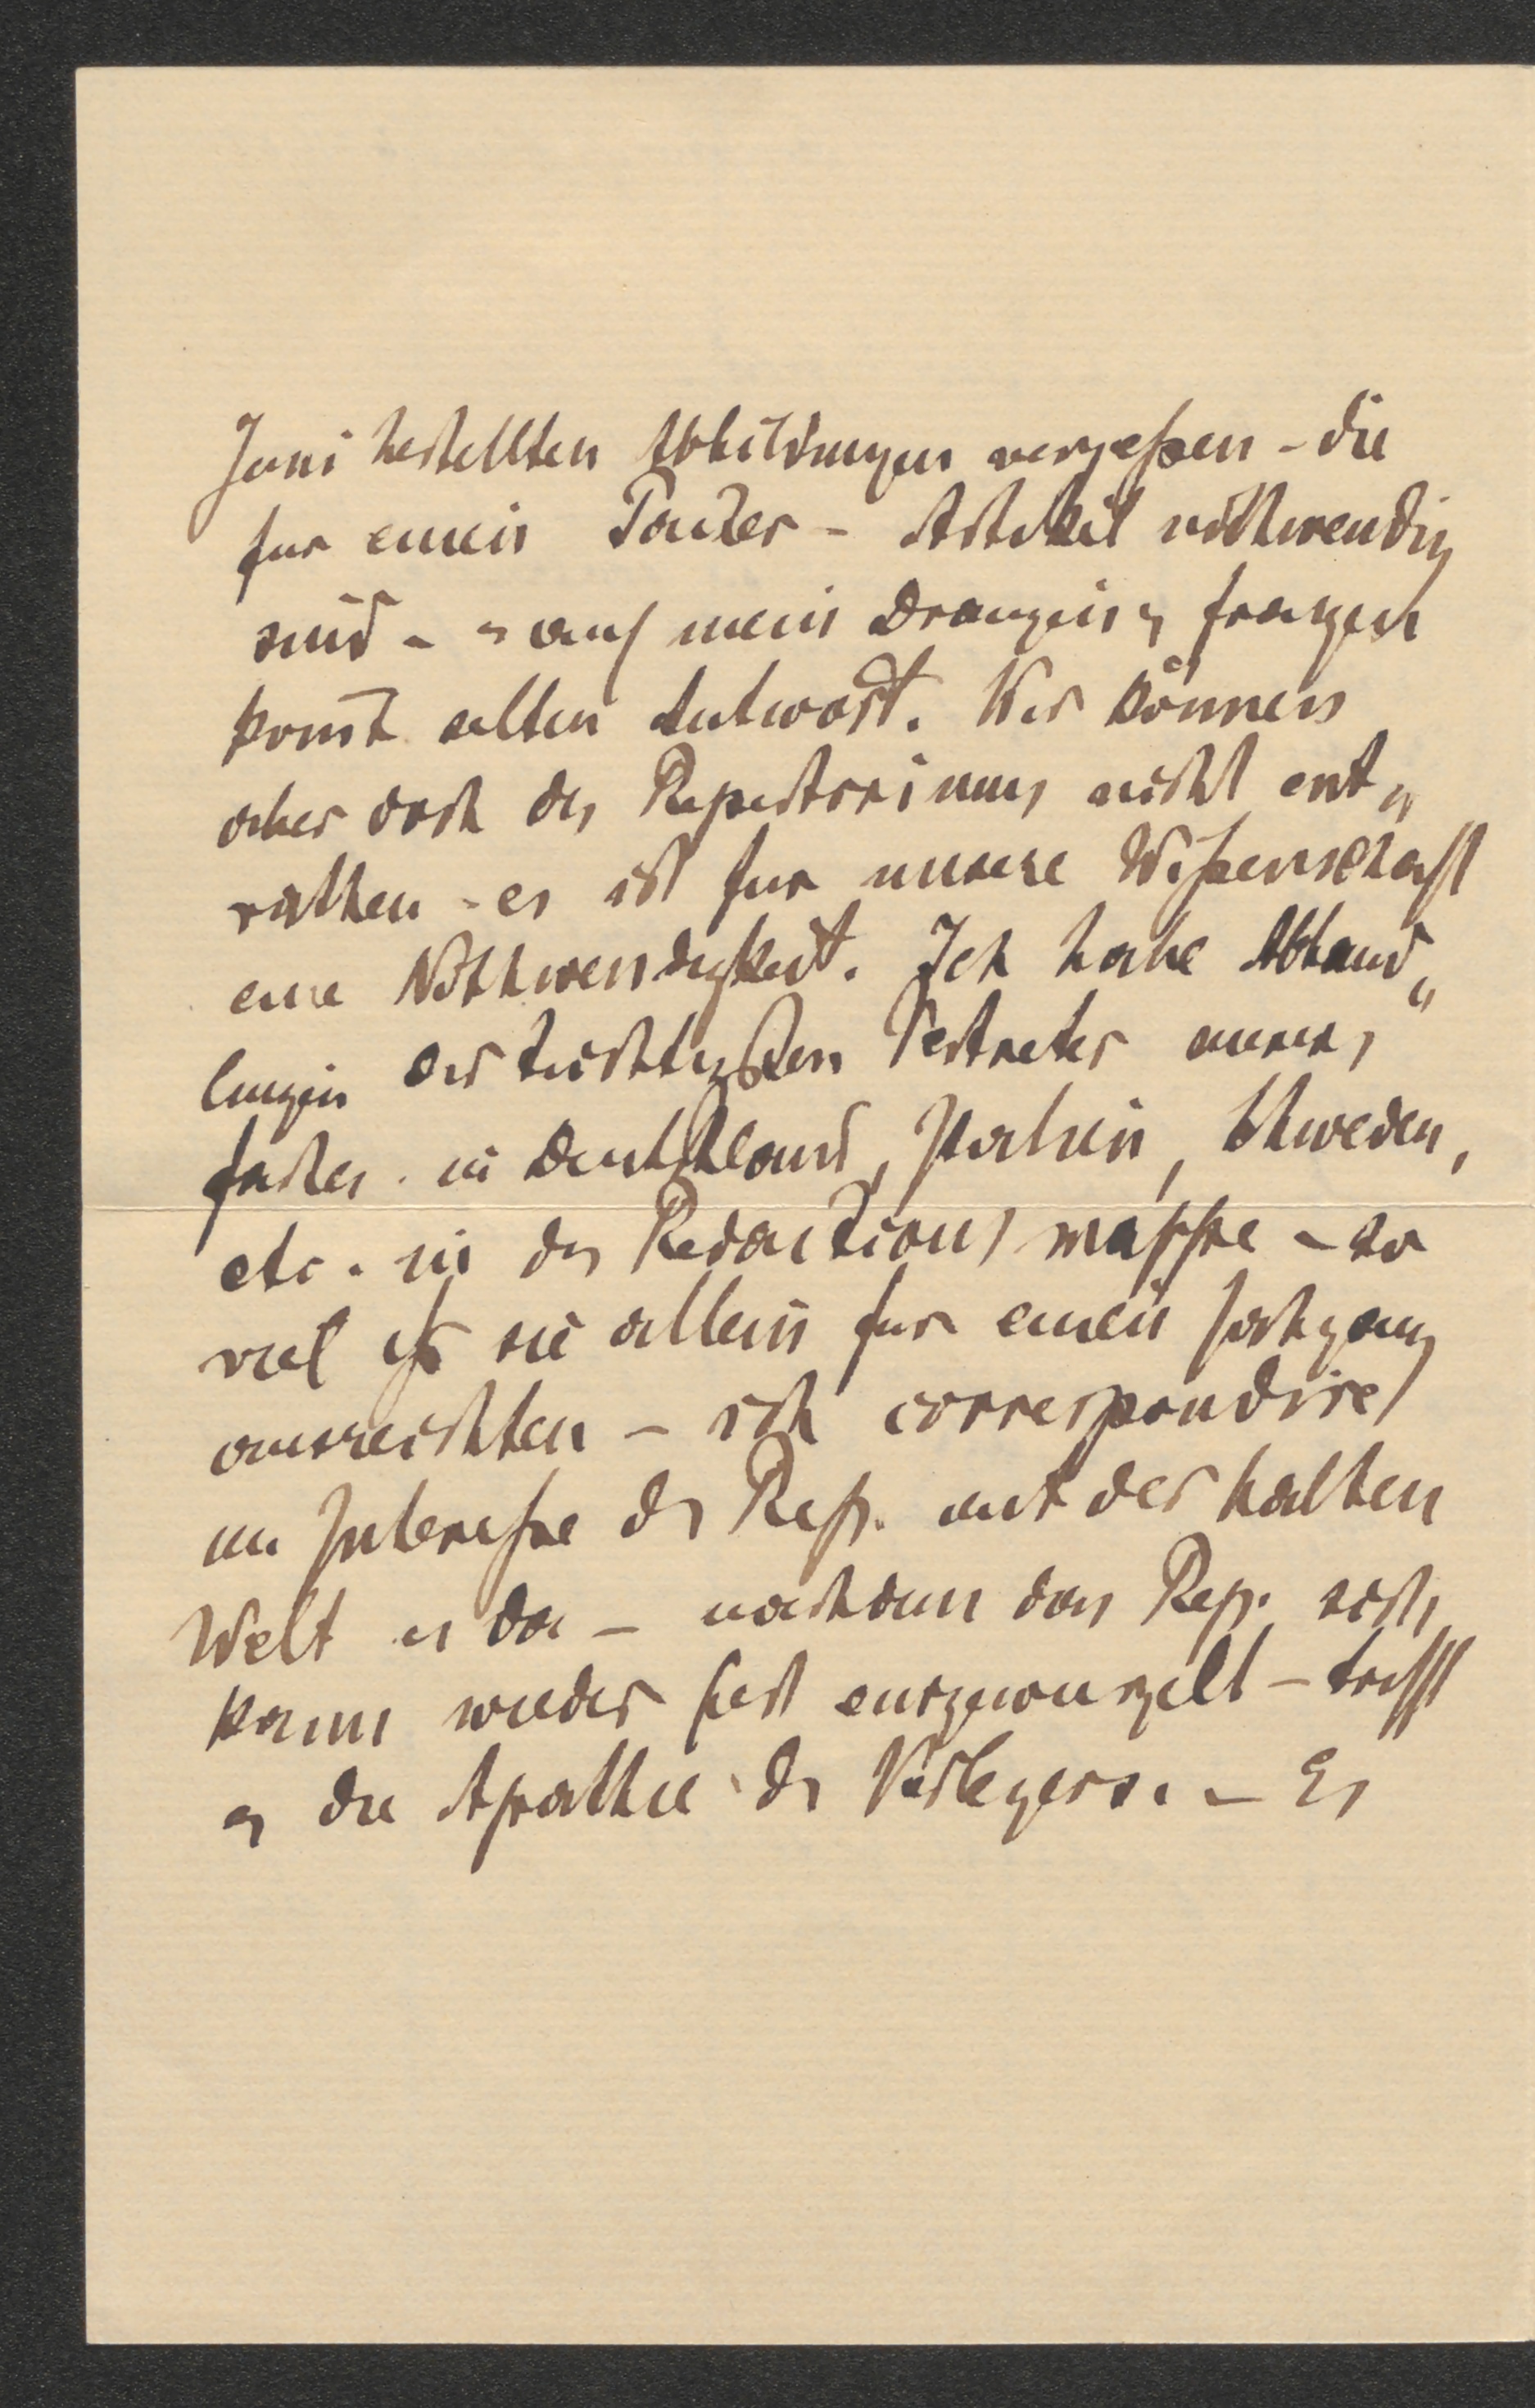 Juni bestellten Abbildungen vergeßen - die
für einen Pacher - Artikel nöthwendig
sind - u auf mein Drängen u fragen
kom̄t selten Antwort. Wir können
aber doch des Repertoriums nicht ent„
rathen - es ist für unsere Wißenschaft
eine Nothwendigkeit. Ich habe Abhand„
lungen der tüchtigsten Vertreter unseres
faches in Deutschland, Italien, Schweden,
etc. in der Redactionsmappe - so
viel daß sie allein für einen Jahrgang
ausreichten - ich correspondire
im Interesse des Rep. mit der halben
Welt u da - nachdem das Rep. sich
kaum wieder fest eingewurzelt - trifft
es die Apathie des Verlegers. - Es